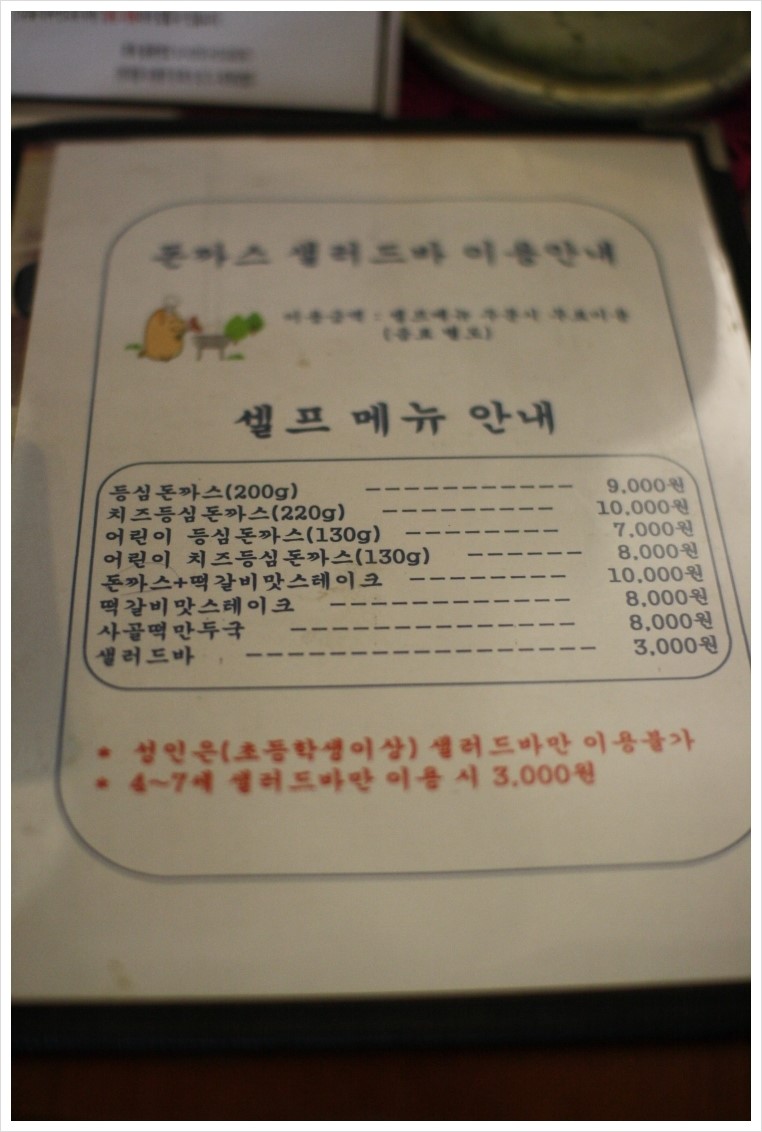 돈까스 샐러드바 이용안내
이용금액 : 셀프메뉴 주문시 무료이용
(음료 별도)
셀프 메뉴 안내
등심돈까스(200g) ----------- 9,000원
치즈등심돈까스(220g) --------- 10,000원
어린이 등심돈까스(130g) -------- 7,000원
어린이 치즈등심돈까스(130g) ------ 8,000원
돈까스+떡갈비맛스테이크 -------- 10,000원
떡갈비맛스테이크 ------------ 8,000원
사골떡만두국 -------------- 8,000원
샐러드바 ----------------- 3,000원
* 성인은(초등학생이상) 샐러드바만 이용불가
* 4~7세 샐러드바만 이용 시 3,000원